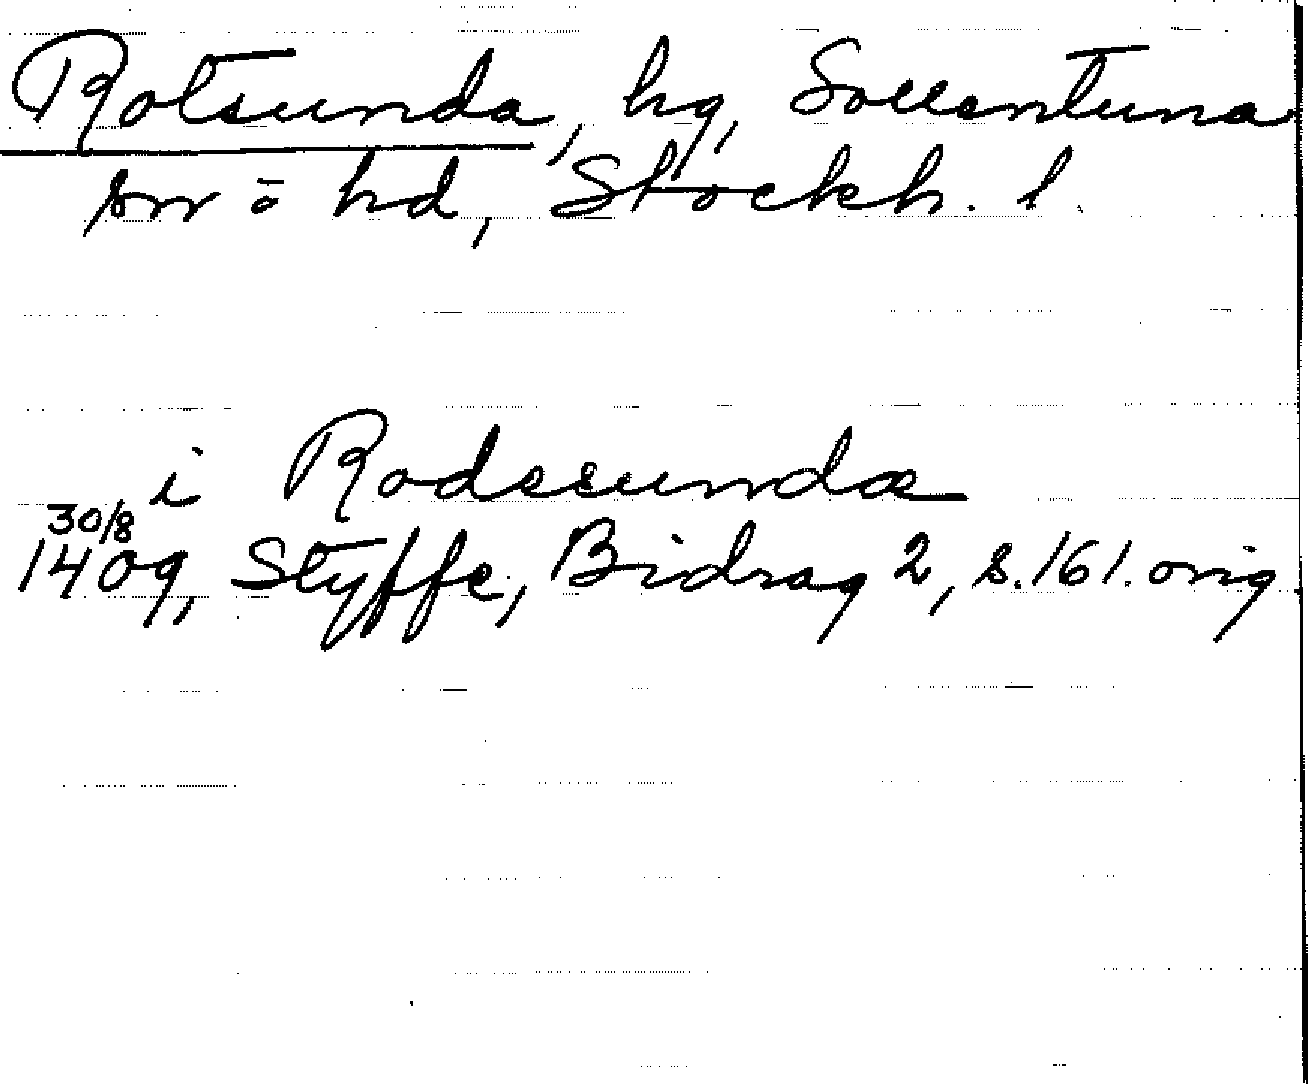 Rotsunda, hg, Sollentuna
sn o hd, Stockh. l.
i Rodssunda
30/8
1409, Styffe, Bidrag 2, s. 161. orig